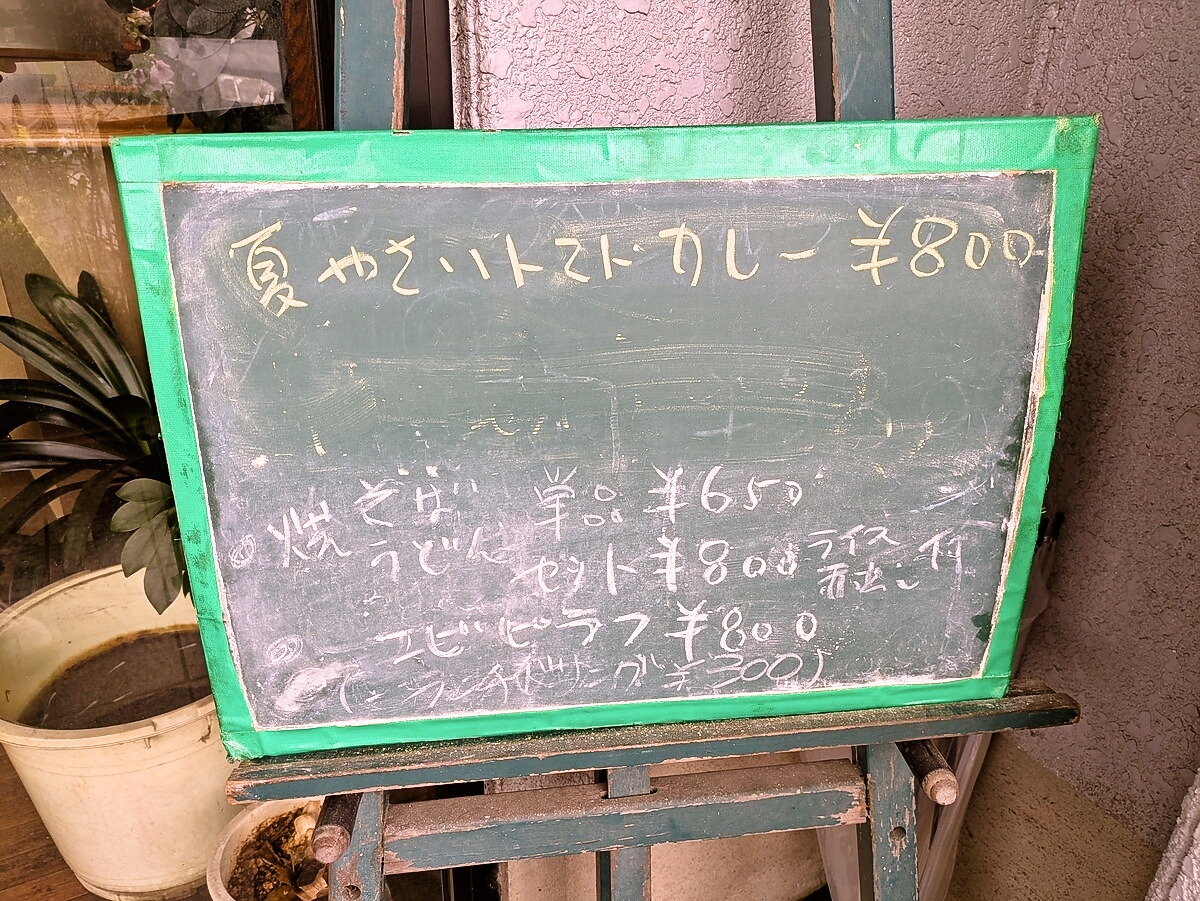 夏やさいトマトカレー ¥800
◎焼 そば 単品 ¥650
うどん セット ¥800 ライス 煮出し 付
◎ エビピラフ ¥800
ランチ ¥300)